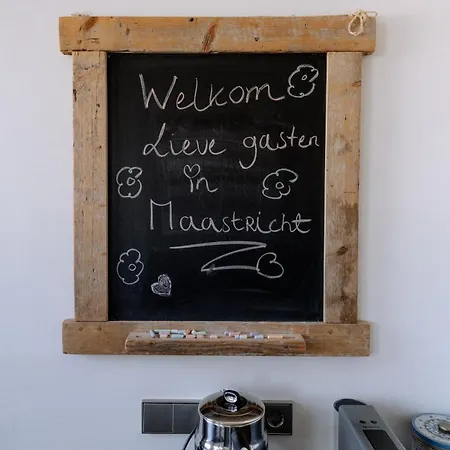 Welkom
Lieve gasten
in
Maastricht